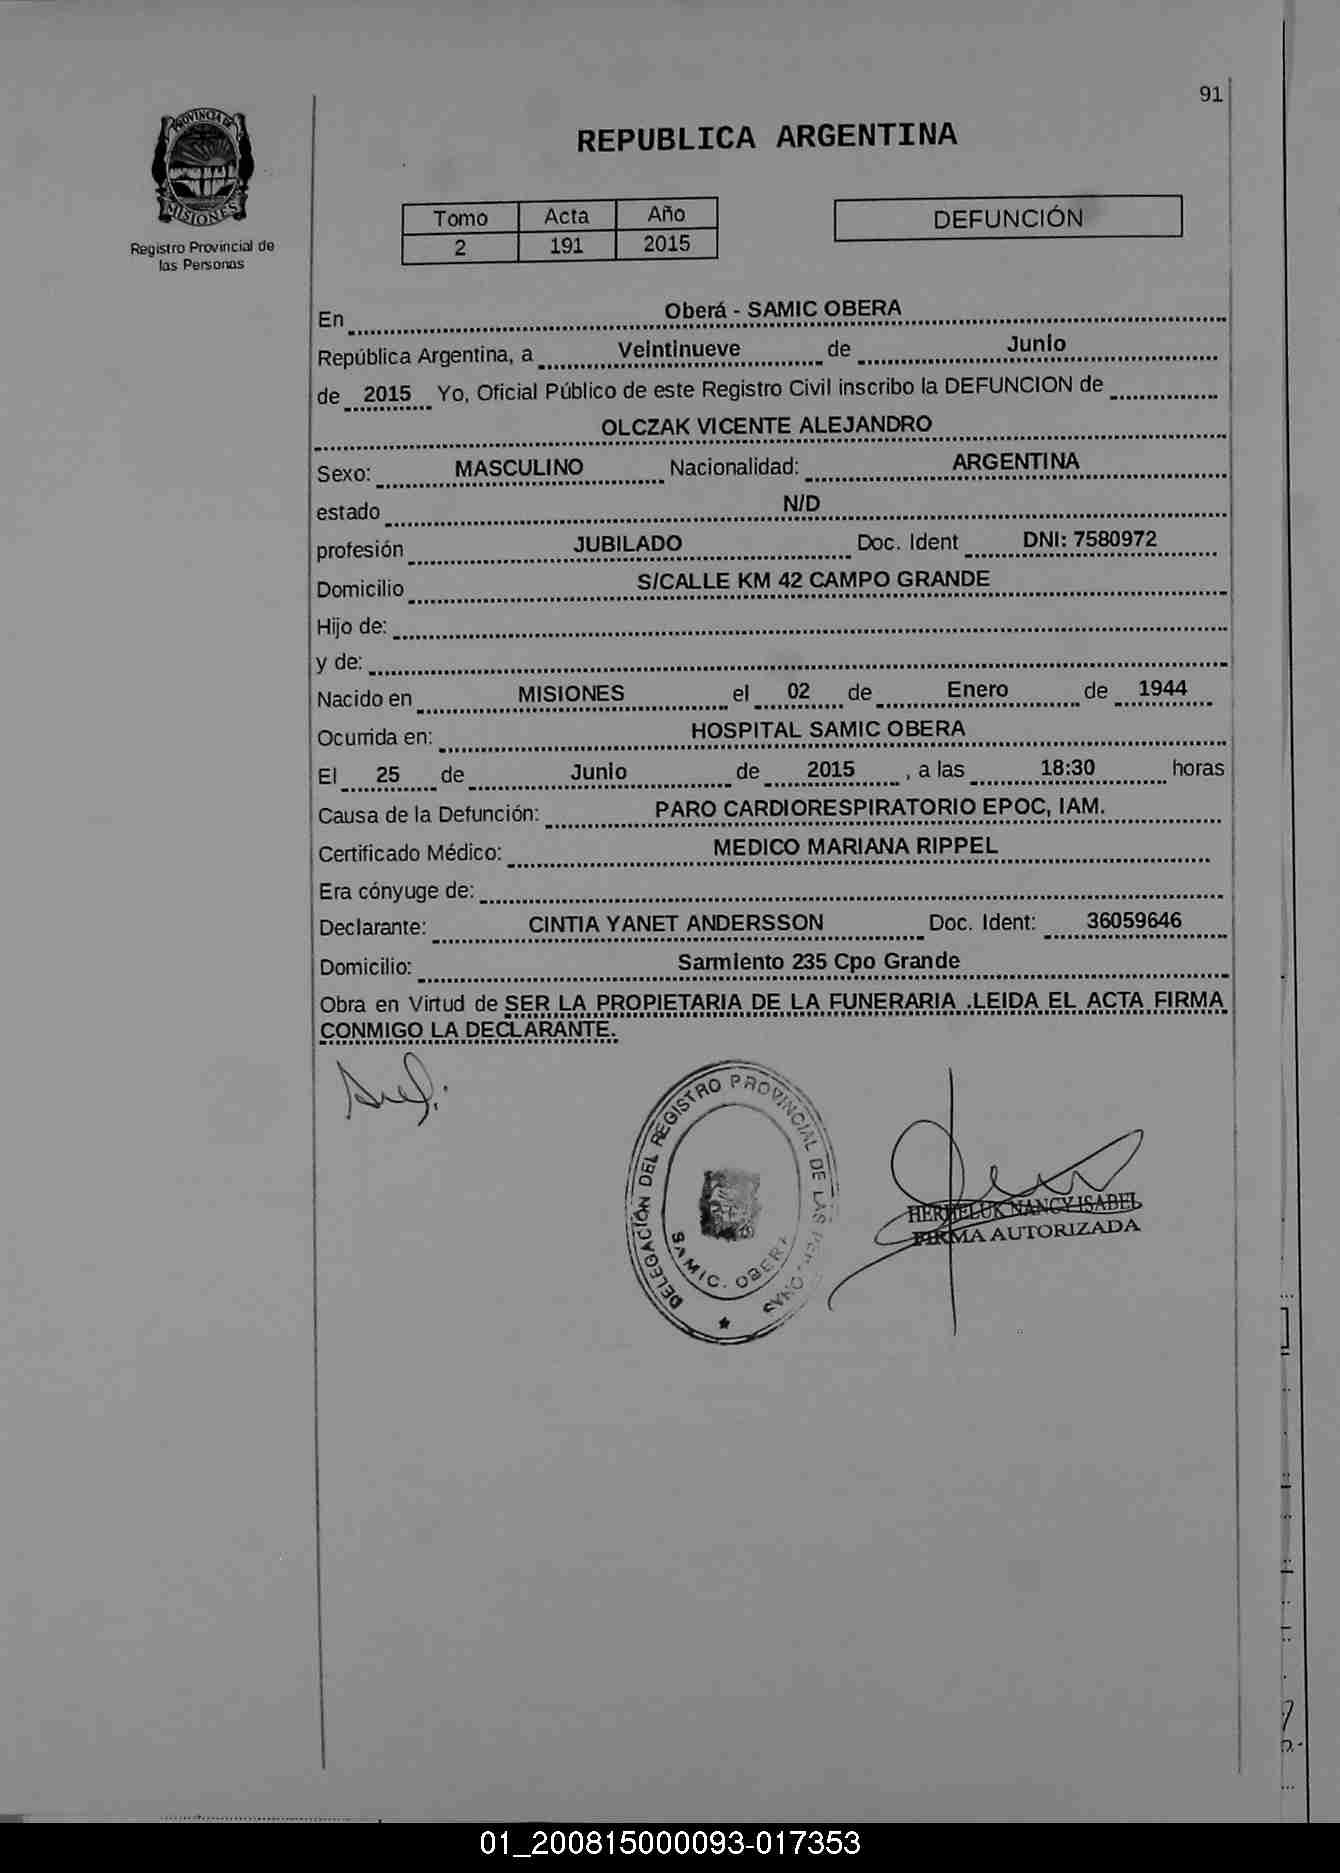 91
PROVINCIA DE
MISIONES
Registro Provincial de
las Personas
REPUBLICA ARGENTINA
Tomo Acta Año
2 191 2015
DEFUNCIÓN
En Oberá - SAMIC OBERA
República Argentina, a Veintinueve de Junio
de 2015 Yo, Oficial Público de este Registro Civil inscribo la DEFUNCION de
OLCZAK VICENTE ALEJANDRO
Sexo: MASCULINO Nacionalidad: ARGENTINA
estado N/D
profesión JUBILADO Doc. Ident DNI: 7580972
Domicilio S/CALLE KM 42 CAMPO GRANDE
Hijo de:
y de:
Nacido en MISIONES el 02 de Enero de 1944
Ocurrida en: HOSPITAL SAMIC OBERA
El 25 de Junio de 2015 , a las 18:30 horas
Causa de la Defunción: PARO CARDIORESPIRATORIO EPOC, IAM.
Certificado Médico: MEDICO MARIANA RIPPEL
Era cónyuge de:
Declarante: CINTIA YANET ANDERSSON Doc. Ident: 36059646
Domicilio: Sarmiento 235 Cpo Grande
Obra en Virtud de SER LA PROPIETARIA DE LA FUNERARIA .LEIDA EL ACTA FIRMA
CONMIGO LA DECLARANTE.
DELEGACIÓN DEL REGISTRO PROVINCIAL DE LAS PERSONAS
SAMIC. OBERA
NANCY ISABEL
FIRMA AUTORIZADA
01_200815000093-017353